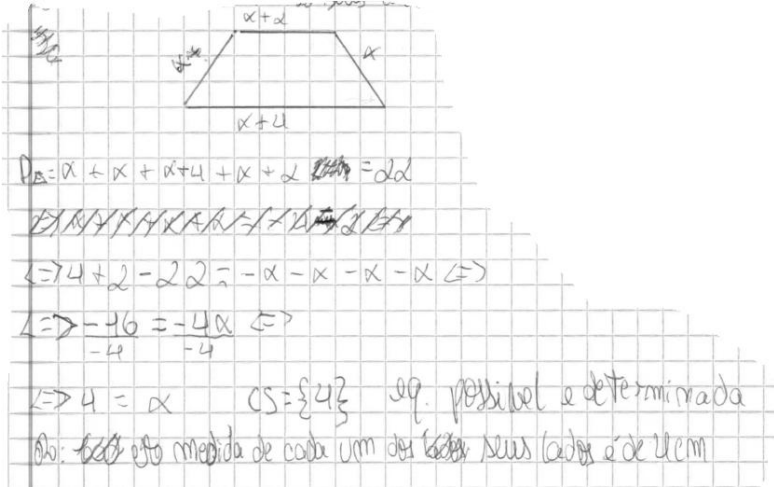 x+2
x
x
x+4
= x + x + x+4 + x + 2 = 22
<=> 4 + 2 - 22 = -x - x - x - x <=>
<=> -16/-4 = -4x/-4 <=>
<=> 4 = x CS={4} eq. possível e determinada
R: medida de cada um dos seus lados é de 4cm